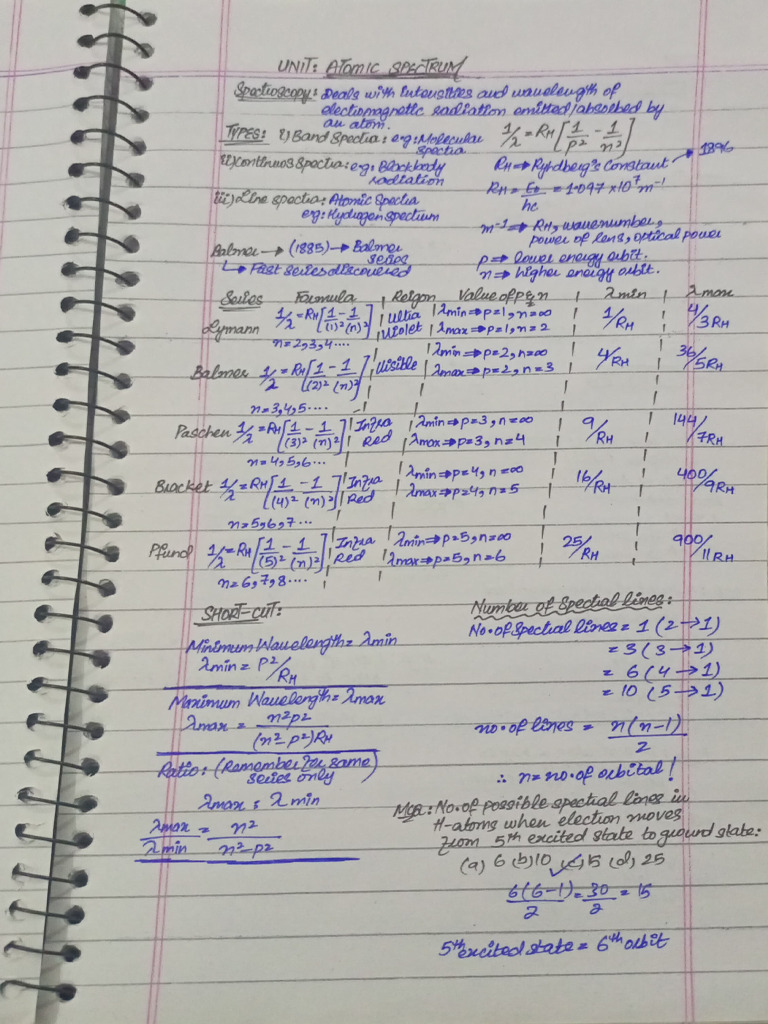 UNIT: ATOMIC SPECTRUM
Spectroscopy: Deals with intensities and wavelength of
electromagnetic radiation emitted/absorbed by
an atom.
TYPES: i) Band Spectra: eg: Molecular
Spectra
ii) Continuos Spectra: eg: Blackbody
radiation
iii) Line spectra: Atomic Spectra
eg: Hydrogen spectrum
Balmer → (1885) → Balmer
series
↳ First series discovered
1/λ = RH [1/p² - 1/n²]
RH ⇒ Ryhdberg's Constant → 1896
RH = E₀/hc = 1.097 × 10⁷ m⁻¹
m⁻¹ ⇒ RH, wavenumber,
power of lens, optical power
p ⇒ lower energy orbit.
n ⇒ higher energy orbit.
Series Formula Reigon Value of p & n λmin λmax
Lymann 1/λ = RH [1/(1)² - 1/(n)²] Ultra Violet λmin ⇒ p=1, n=∞ 1/RH 4/3RH
λmax ⇒ p=1, n=2
n = 2,3,4....
Balmer 1/λ = RH [1/(2)² - 1/(n)²] Visible λmin ⇒ p=2, n=∞ 4/RH 36/5RH
λmax ⇒ p=2, n=3
n = 3,4,5....
Paschen 1/λ = RH [1/(3)² - 1/(n)²] Infra Red λmin ⇒ p=3, n=∞ 9/RH 144/7RH
λmax ⇒ p=3, n=4
n = 4,5,6...
Bracket 1/λ = RH [1/(4)² - 1/(n)²] Infra Red λmin ⇒ p=4, n=∞ 16/RH 400/9RH
λmax ⇒ p=4, n=5
n = 5,6,7...
Pfund 1/λ = RH [1/(5)² - 1/(n)²] Infra Red λmin ⇒ p=5, n=∞ 25/RH 900/11RH
λmax ⇒ p=5, n=6
n = 6,7,8....
SHORT-CUT:
Minimum Wavelength = λmin
λmin = p²/RH
Maximum Wavelength = λmax
λmax = n²p²/(n²-p²)RH
Ratio: (Remember for same)
series only
λmax : λmin
λmax/λmin = n²/n²-p²
Number of Spectral lines:
No. of Spectral lines = 1 (2→1)
= 3 (3→1)
= 6 (4→1)
= 10 (5→1)
no. of lines = n(n-1)/2
∴ n = no. of orbital!
MCQ: No. of possible spectral lines in
H-atoms when electron moves
from 5th excited state to ground state:
(a) 6 (b) 10 (c) 15 (d) 25
6(6-1)/2 = 30/2 = 15
5th excited state = 6th orbit